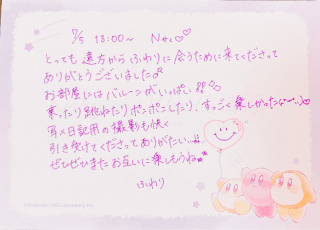 9/5 13:00〜
とっても 遠方から ふわりに 会うために来てくださって
ありがとうございました
お部屋にはバルーンがいっぱい
乗ったり 跳ねたり ポンポンしたり、すっごく 楽しかったな〜
写メ日記用の 撮影も快く
引き受けてくださって ありがたい…
ぜひぜひまた お互いに 楽しもうね
ふわり